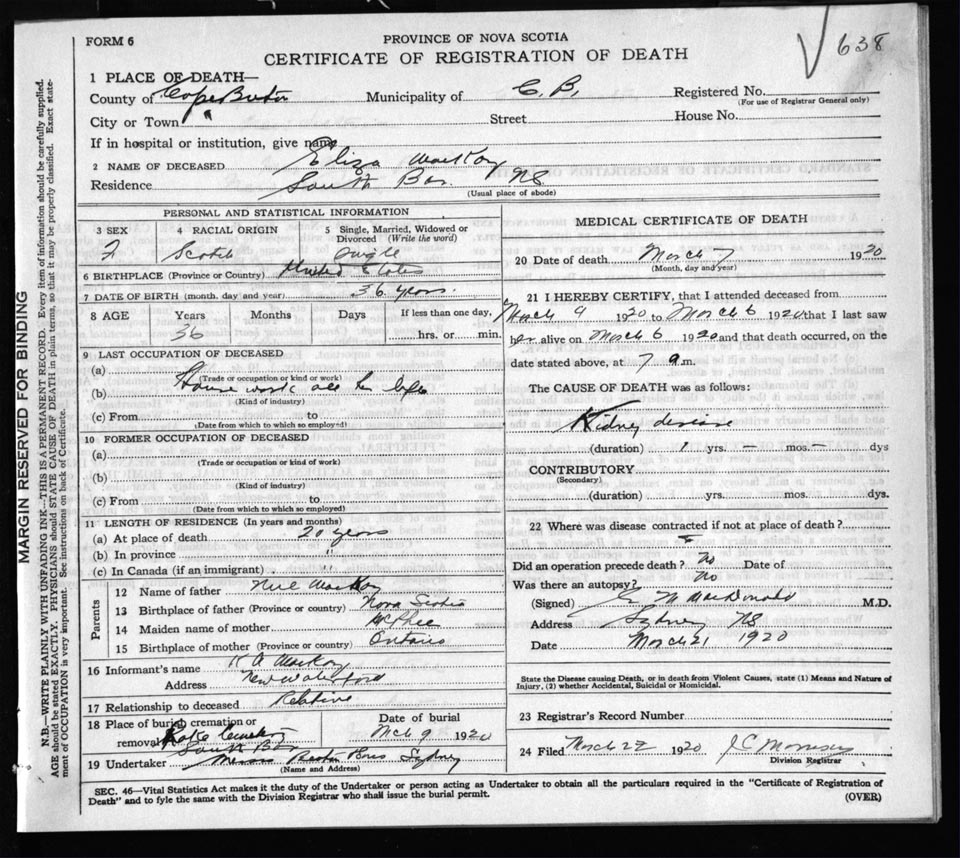 FORM 6
PROVINCE OF NOVA SCOTIA
CERTIFICATE OF REGISTRATION OF DEATH
638
1 PLACE OF DEATH—
County of Cape Breton Municipality of C. B. Registered No.
(For use of Registrar General only)
City or Town Street House No.
If in hospital or institution, give name
2 NAME OF DECEASED Eliza MacKay
Residence South Bar. NS
(Usual place of abode)
PERSONAL AND STATISTICAL INFORMATION
3 SEX 4 RACIAL ORIGIN 5 Single, Married, Widowed or Divorced (Write the word)
F Scotch Single
6 BIRTHPLACE (Province or Country) United States
7 DATE OF BIRTH (month, day and year) 36 years.
8 AGE Years Months Days If less than one day,
36 hrs. or min.
9 LAST OCCUPATION OF DECEASED
(a)
(Trade or occupation or kind of work)
(b) House work all her life
(Kind of industry)
(c) From to
(Date from which to which so employed)
10 FORMER OCCUPATION OF DECEASED
(a)
(Trade or occupation or kind of work)
(b)
(Kind of industry)
(c) From to
(Date from which to which so employed)
11 LENGTH OF RESIDENCE (In years and months)
(a) At place of death 20 years
(b) In province "
(c) In Canada (if an immigrant) "
Parents
12 Name of father Neil MacKay
13 Birthplace of father (Province or country) Nova Scotia
14 Maiden name of mother McPhee
15 Birthplace of mother (Province or country) Ontario
16 Informant's name MacKay
Address New Waterford
17 Relationship to deceased Relative
18 Place of burial, cremation or removal Cemetery South Bar
Date of burial Mch 9 1920
19 Undertaker Bros Sydney
(Name and Address)
MEDICAL CERTIFICATE OF DEATH
20 Date of death March 7 1920
(Month, day and year)
21 I HEREBY CERTIFY, that I attended deceased from
March 4 1920 to March 6 1920 that I last saw
her alive on March 6 1920 and that death occurred, on the
date stated above, at 7 a.m.
The CAUSE OF DEATH was as follows:
Kidney disease
(duration) 1 yrs. — mos. — dys
CONTRIBUTORY
(Secondary)
(duration) yrs. mos. dys.
22 Where was disease contracted if not at place of death?
Did an operation precede death? No Date of
Was there an autopsy? No
(Signed) MacDonald M.D.
Address Sydney NS
Date March 21 1920
State the Disease causing Death, or in death from Violent Causes, state (1) Means and Nature of
Injury, (2) whether Accidental, Suicidal or Homicidal.
23 Registrar's Record Number
24 Filed March 22 1920 J C Morrison
Division Registrar
SEC. 46—Vital Statistics Act makes it the duty of the Undertaker or person acting as Undertaker to obtain all the particulars required in the "Certificate of Registration of
Death" and to fyle the same with the Division Registrar who shall issue the burial permit.
(OVER)
MARGIN RESERVED FOR BINDING
N.B.—WRITE PLAINLY WITH UNFADING INK—THIS IS A PERMANENT RECORD. Every item of information should be carefully supplied.
AGE should be stated EXACTLY. PHYSICIANS should STATE CAUSE OF DEATH in plain terms, so that it may be properly classified. Exact state-
ment of OCCUPATION is very important. See instructions on back of Certificate.